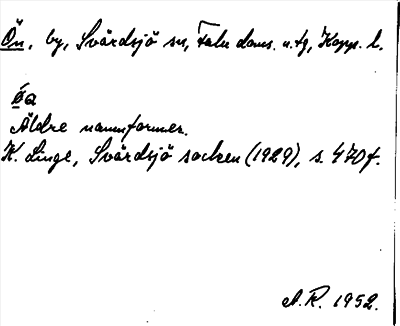 Ön, by, Svärdsjö sn, Falu doms. n. tg, Kopp. l.
Öa
Äldre namnformer.
K. Linge, Svärdsjö socken (1929), s. 470f.
A. R. 1952.